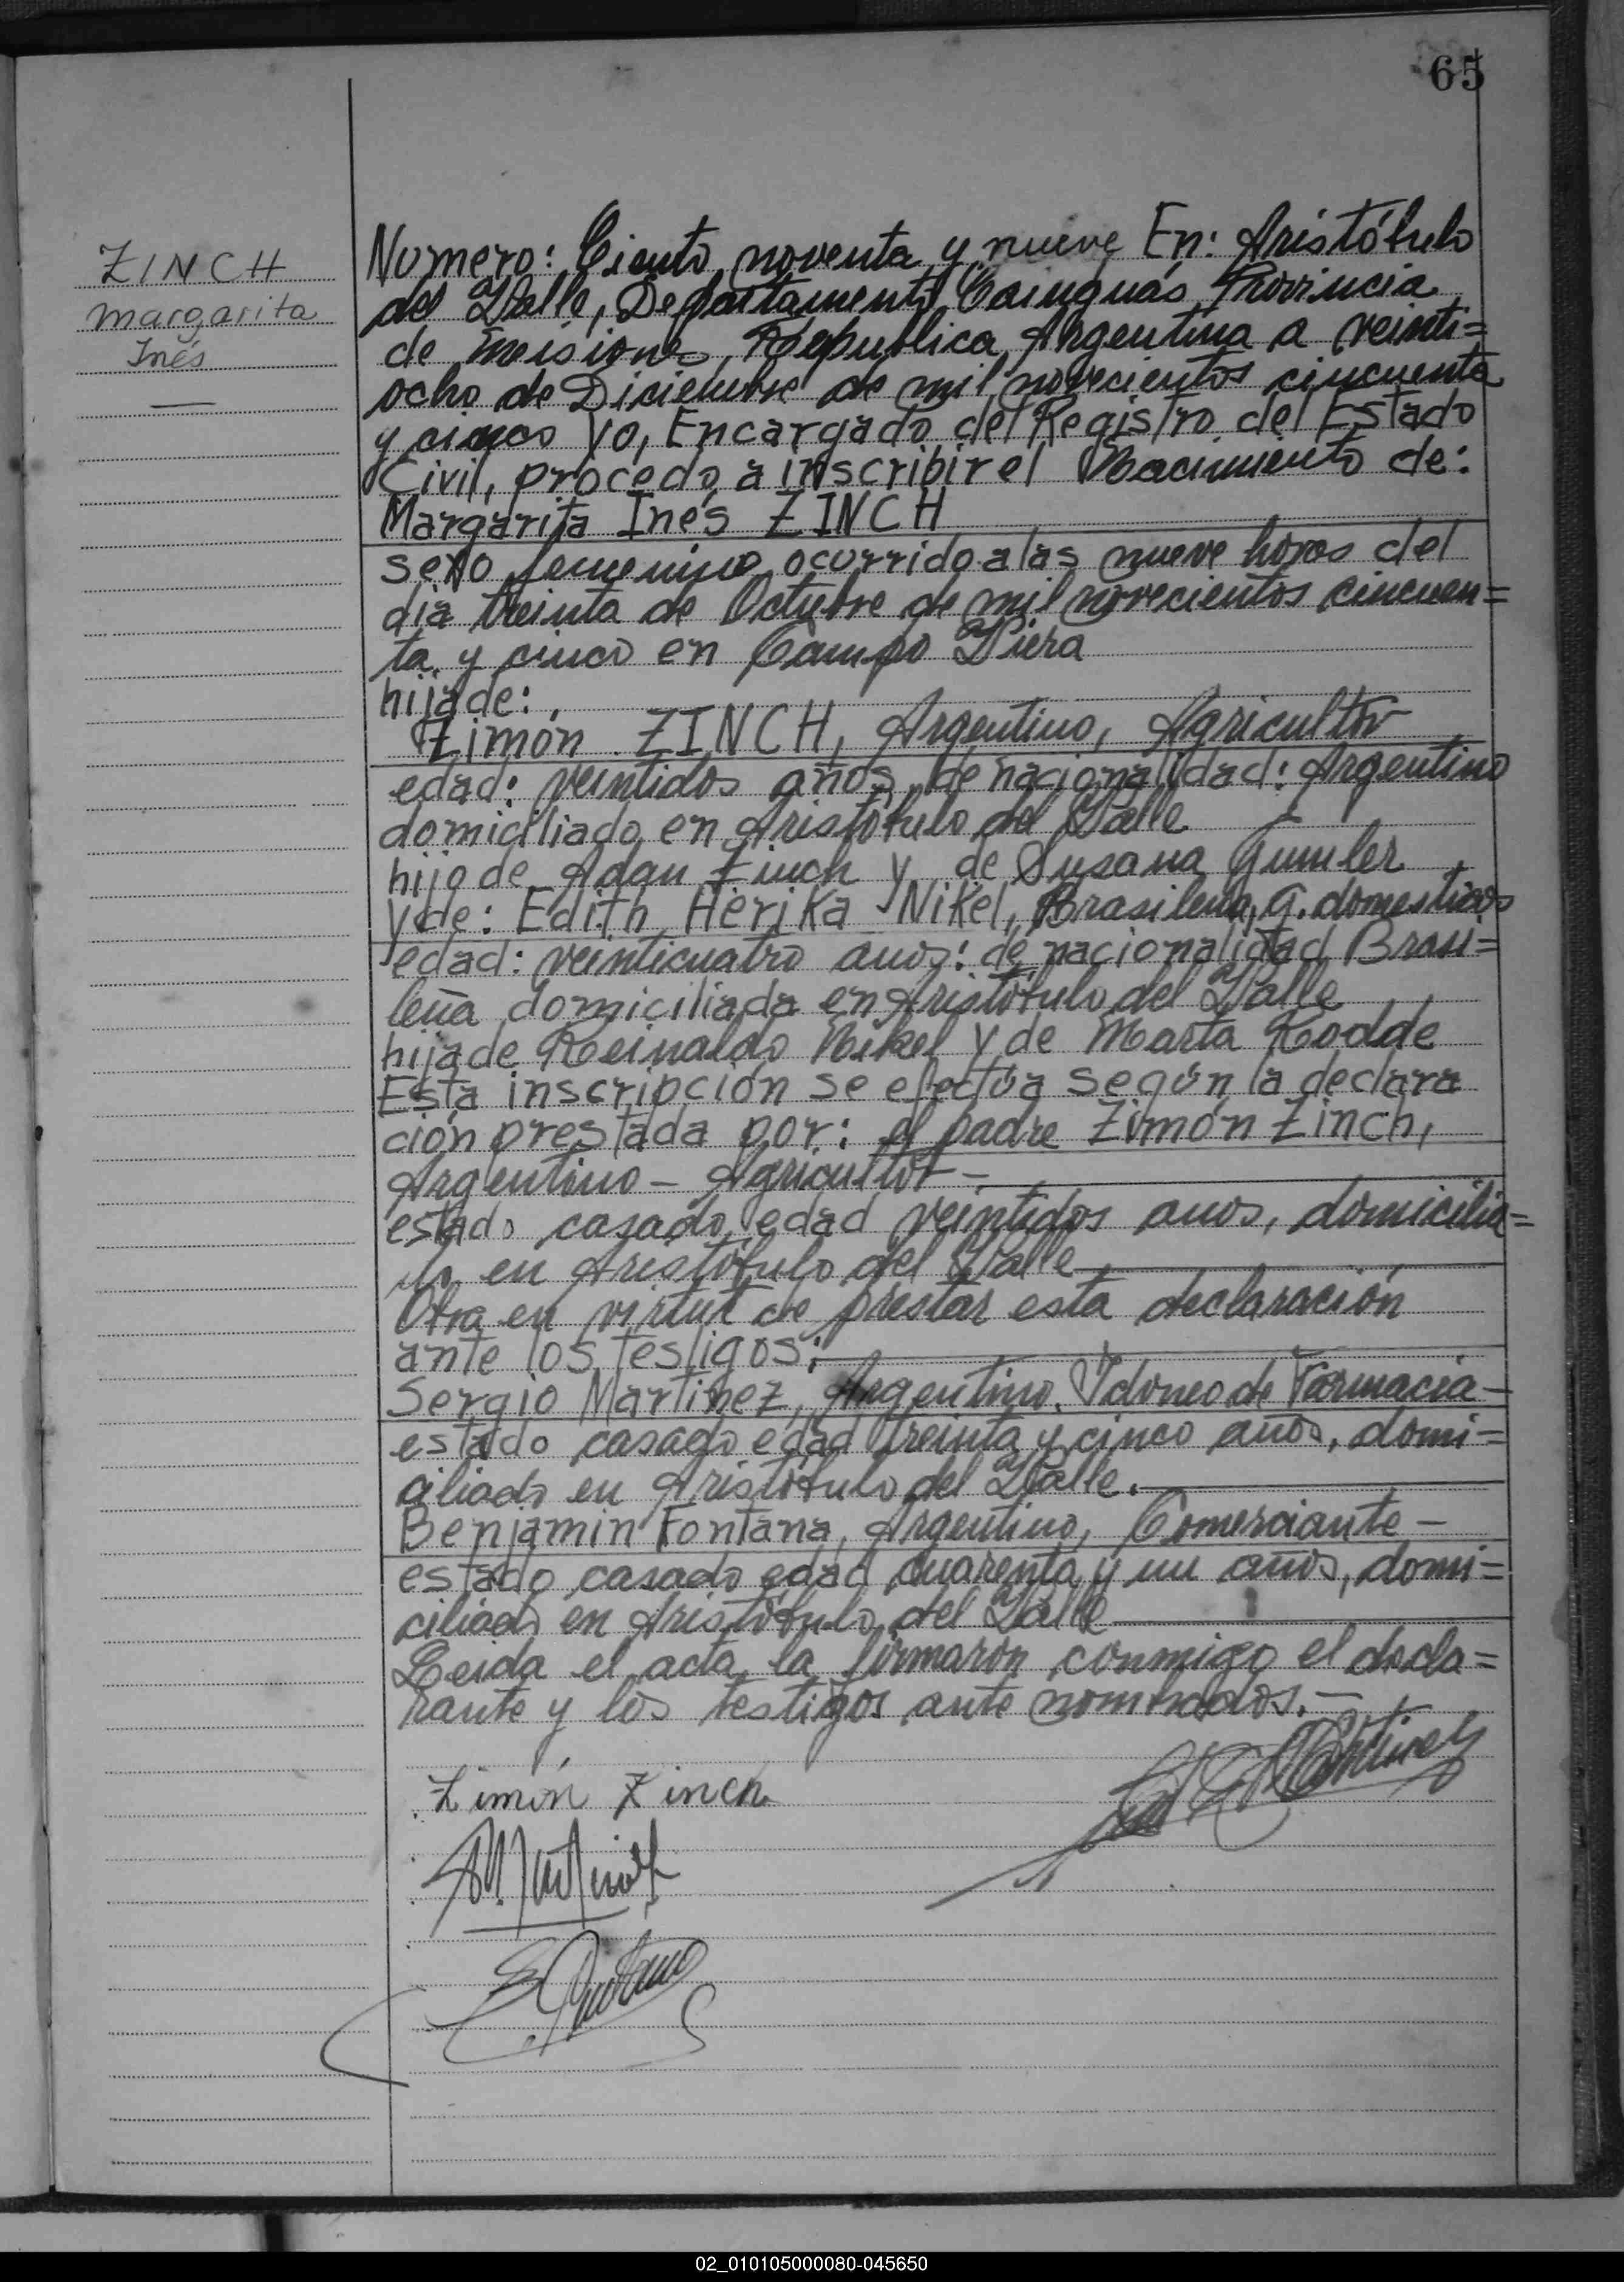 65
ZINCH
Margarita
Inés
Numero: Ciento noventa y nueve En: Aristóbulo
del Valle, Departamento Cainguás, Provincia
de Misiones, República Argentina a veinti=
ocho de Diciembre de mil novecientos cincuenta
y cinco Yo, Encargado del Registro del Estado
Civil, procedo a inscribir el Nacimiento de:
Margarita Inés ZINCH
sexo femenino ocurrido a las nueve horas del
dia treinta de Octubre de mil novecientos cincuen=
ta y cinco en Campo Viera
hija de:
Zimón ZINCH, Argentino, Agricultor
edad: veintidos años, de nacionalidad: Argentino
domiciliado en Aristóbulo del Valle
hijo de Adan Zinch y de Susana Gumler
y de: Edith Herika Nikel, Brasileña, q. domesticos
edad: veinticuatro años: de nacionalidad Brasi=
leña domiciliada en Aristóbulo del Valle
hija de Reinaldo Nikel y de Marta Rodde
Esta inscripción se efectúa según la declara
ción prestada por: el padre Zimón Zinch,
Argentino - Agricultor -
estado casado edad veintidos años, domicilia=
do en Aristóbulo del Valle
Obra en virtut de prestar esta declaración
ante los testigos:
Sergio Martinez, Argentino. Idoneo de Farmacia -
estado casado edad treinta y cinco años, domi=
ciliado en Aristóbulo del Valle.
Benjamin Fontana, Argentino, Comerciante -
estado casado edad cuarenta y un años, domi=
ciliado en Aristóbulo del Valle
Leida el acta la firmaron conmigo el decla=
rante y los testigos ante nombrados. -
Zimón Zinch
02_010105000080-045650